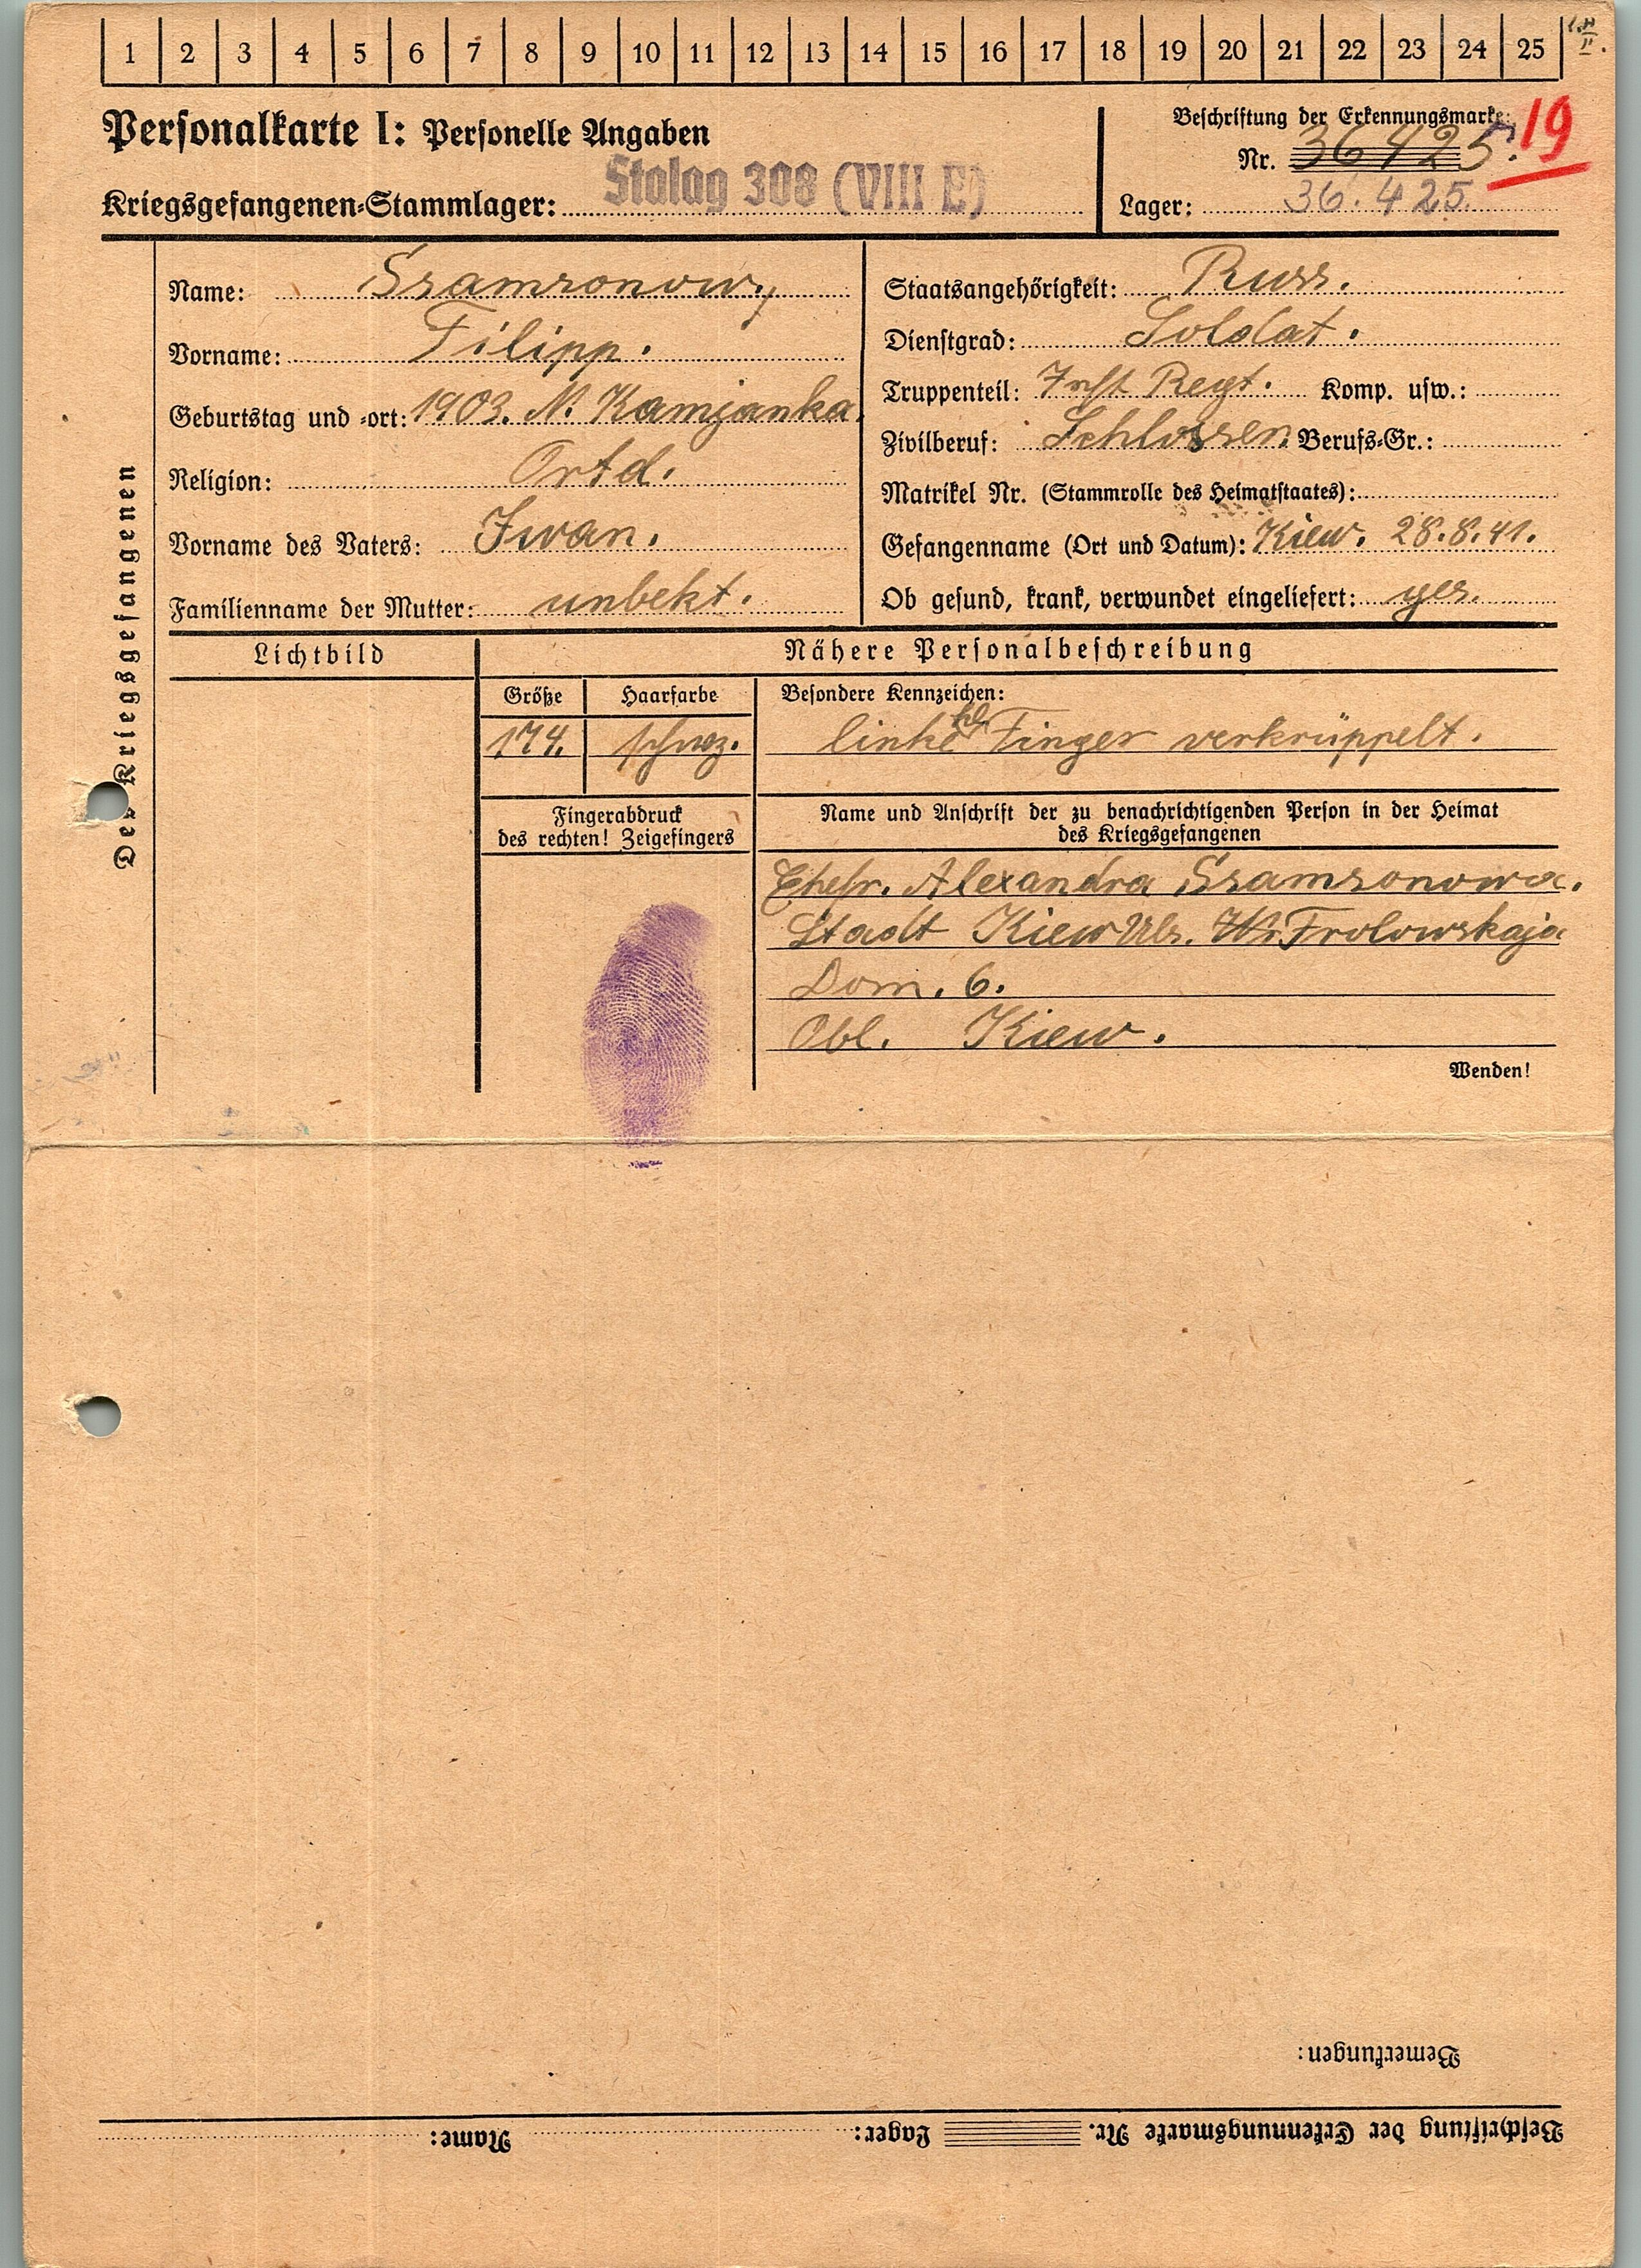 1 2 3 4 5 6 7 8 9 10 11 12 13 14 15 16 17 18 19 20 21 22 23 24 25
Personalkarte I: Personelle Angaben
Beschriftung der Erkennungsmarke:
Nr. 36425. 19
Kriegsgefangenen-Stammlager: Stalag 308 (VIII E)
Lager: 36.425.
Des Kriegsgefangenen
Name: Ssamsonow,
Vorname: Filipp.
Geburtstag und -ort: 1903. N. Kamjanka.
Religion: Ortd.
Vorname des Vaters: Iwan.
Familienname der Mutter: unbekt.
Staatsangehörigkeit: Russ.
Dienstgrad: Soldat.
Truppenteil: Inft. Regt. Komp. usw.:
Zivilberuf: Schlosser. Berufs-Gr.:
Matrikel Nr. (Stammrolle des Heimatstaates):
Gefangenname (Ort und Datum): Kiew. 28.8.41.
Ob gesund, krank, verwundet eingeliefert: ges.
Lichtbild
Nähere Personalbeschreibung
Größe Haarfarbe Besondere Kennzeichen:
174. schwz. linke kl. Finger verkrüppelt.
Fingerabdruck
des rechten! Zeigefingers
Name und Anschrift der zu benachrichtigenden Person in der Heimat
des Kriegsgefangenen
Ehefr. Alexandra Ssamsonowa.
Stadt Kiew Ulr. Frolowskaja
Dom. 6.
Obl. Kiew.
Wenden!
Bemerkungen:
Beschriftung der Erkennungsmarke Nr. Lager: Name: